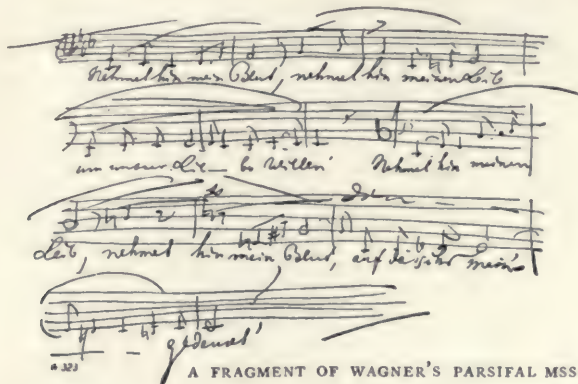 Nehmet hin mein Blut, nehmet hin meinen Leib
um unsrer Lie-be Willen!
Nehmet hin meinen
Leib, nehmet hin mein Blut, auf dass ihr mein'
gedenket!
# 323
A FRAGMENT OF WAGNER'S PARSIFAL MSS